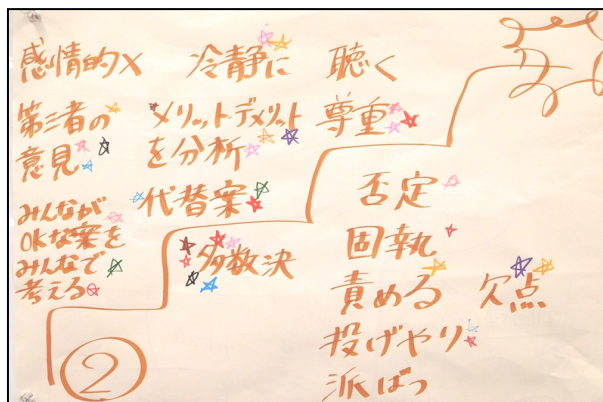 感情的×
冷静に
聴く
第三者の
意見
メリットデメリット
を分析
尊重
代替案
みんなが
OKな案を
みんなで
考える
多数決
否定
固執
責める
欠点
投げやり
派ばつ
②